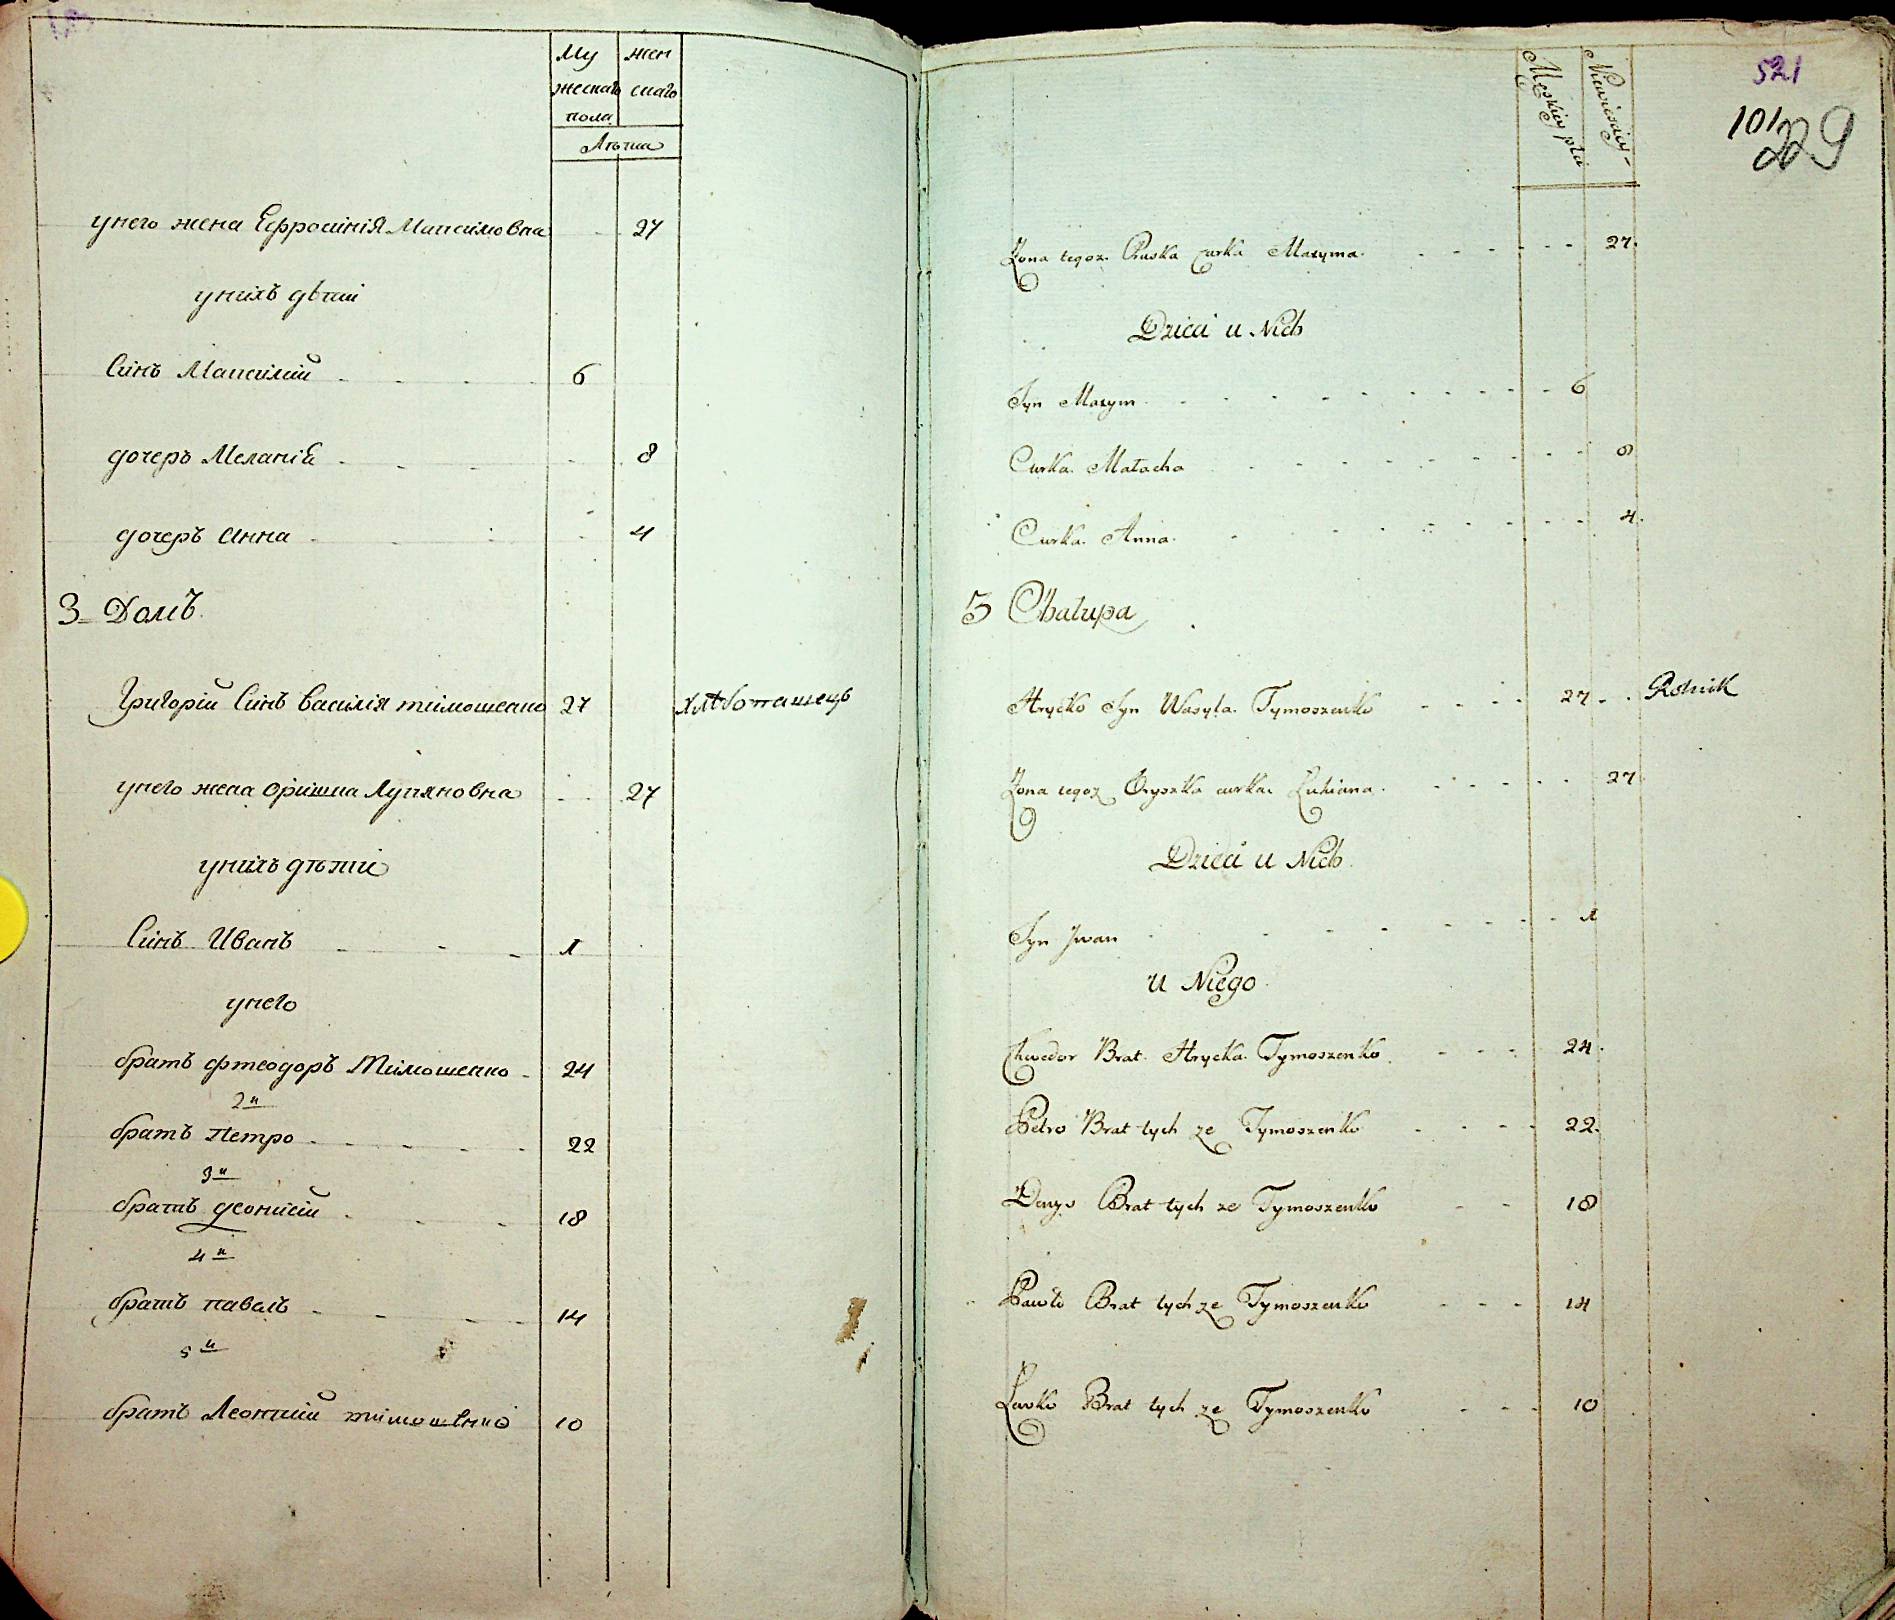 Му
жескаго
пола
жен
скаго
Лѣта
унего жена Ефросинія Максимовна 27
унихъ дѣти
Синъ Максимій 6
дочеръ Меланія 8
дочеръ Анна 4
3 Домъ
Григорій Синъ Василія тимошенко 27 хлѣбопашецъ
унего жена Оришка Лукяновна 27
унихъ дѣти
Синъ Иванъ 1
унего
братъ фтеодоръ Тимошенко 24
2й
братъ Петро 22
3й
братъ деонисій 18
4й
братъ павелъ 14
5й
братъ Леонтій тимошенко 10
Męskiey płci
Niewiesciey
521
101
229
Zona tegoz Pruska curka Maxyma 27
Dzieci u Nich
Syn Maxym 6
Curka Małacha 8
Curka Anna 4
3 Chalupa
Hrycko Syn Wasyla Tymoszenko 27 Rolnik
Zona tegoz Oryszka curka Lukiana 27
Dzieci u Nich
Syn Jwan 1
u Niego
Chwedor Brat Hrycka Tymoszenko 24
Petro Brat tych ze Tymoszenko 22
Denys Brat tych ze Tymoszenko 18
Pawło Brat tych ze Tymoszenko 14
Lewko Brat tych ze Tymoszenko 10